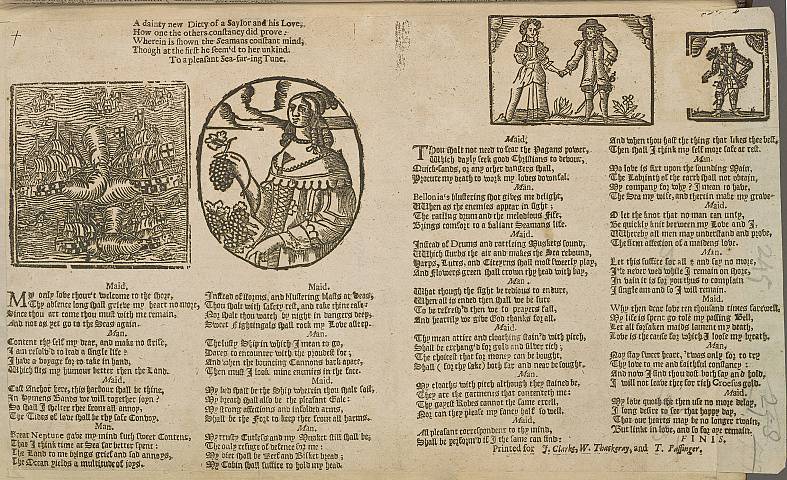 A dainty new Ditty of a Saylor and his Love,
How one the others constancy did prove:
Wherein is shown the Seamans constant mind,
Though at the first he seem'd to her unkind.
To a pleasant Sea-faring Tune.
Maid.
My only love thour't welcome to the shore,
Thy absence long shall grieve my heart no more,
Since thou art come thou must with me remain,
And not as yet go to the Seas again.
Man.
Content thy self my dear, and make no strife,
I am resolv'd to lead a single life:
I have a voyage for to take in hand,
Which fits my humour better then the Land.
Maid.
Cast Anchor here, this harbour shall be thine,
In Hymens Bands we will together joyn?
So shall I shelter thee from all annoy,
The Tides of love shall be thy safe Convoy.
Man.
Great Neptune gave my mind such sweet Content,
That I think time at Sea far better spent:
The Land to me brings grief and sad annoys,
The Ocean yields a multitude of joys.
Maid.
Instead of storms, and blustering blasts at Seas,
Thou shalt with safety rest, and take thine ease:
Nor shalt thou watch by night in dangers deep,
Sweet Nightingals shall rock my Love asleep.
Man.
The lusty Ship in which I mean to go,
Dares to encounter with the proudest foe;
And when the bouncing Cannons back apart,
Then must I look mine enemies in the face.
Maid.
My bed shall be the Ship wherein thou shalt sail,
My breath shall also be the pleasant Gale:
My strong affections and infolded arms,
Shall be the Fort to keep thee from all harms.
Man.
My trusty Cutless and my Musket still shall be,
The only refuge of defence for me:
My diet shall be Beef and Bisket bread;
My Cabin shall suffice to hold my head.
Maid,
Thou shalt not need to fear the Pagans power,
Which dayly seek good Christians to devour,
Quick-sands, or any other dangers shall,
Procure my death to work my loves downfal.
Man.
Bellonia's blustering shot gives me delight,
When as the enemies appear in sight;
The ratling drum and the melodious Fife,
Brings comfort to a valiant Seamans life.
Maid.
Instead of Drums and rattling Muskets sound,
Which sturbs the air and makes the Sea rebound,
Harps, Lutes, and Citterns shall most sweetly play,
And Flowers green shall crown thy head with bay,
Man.
What though the fight be tedious to endure,
When all is ended then shall we be sure
To be refresh'd then we to prayers fall,
And heartily we give God thanks for all.
Maid.
Thy mean attire and cloathing stain'd with pitch,
Shall be exchang'd for gold and silver rich;
The choicest that for money can be bought,
Shall (for thy sake) both far and near be sought.
Man.
My cloaths with pitch although they stained be,
They are the garments that contenteth me:
Thy gayest Robes cannot the same excell,
Nor can they please my fancy half so well.
Maid.
All pleasant correspondent to thy mind,
Shall be perform'd if I the same can find:
And when thou hast the thing that likes thee best,
Then shall I think my self more safe at rest.
Man.
My love is fixt upon the sounding Main,
The Labyrinth of the earth shall not obtain,
My company for why? I mean to have,
The Sea my wife, and therein make my grave.
Maid.
O let the knot that no man can unty,
Be quickly knit between my Love and I,
Whereby all men may understand and prove,
The firm affection of a maidens love.
Man.
Let this suffice for all I say no more,
I'le never wed while I remain on shore,
In vain it is for you thus to complain
I single am and so I will remain.
Maid.
Why then dear love ten thousand times farewell,
My life is spent go tole my passing Bell,
Let all forsaken maids lament my death,
Love is the cause for which I lose my breath.
Man,
Nay stay sweet heart, 'twas only for to try
Thy love to me and faithful constancy:
And now I find thou dost both fast and hold,
I will not leave thee for rich Croesus gold.
Maid.
My love quoth she then use no more delay,
I long desire to see that happy day,
That our hearts may be no longer twain,
But linkt in love, and so for aye remain.
FINIS.
Printed for J. Clarke, W. Thackeray, and T. Passinger.